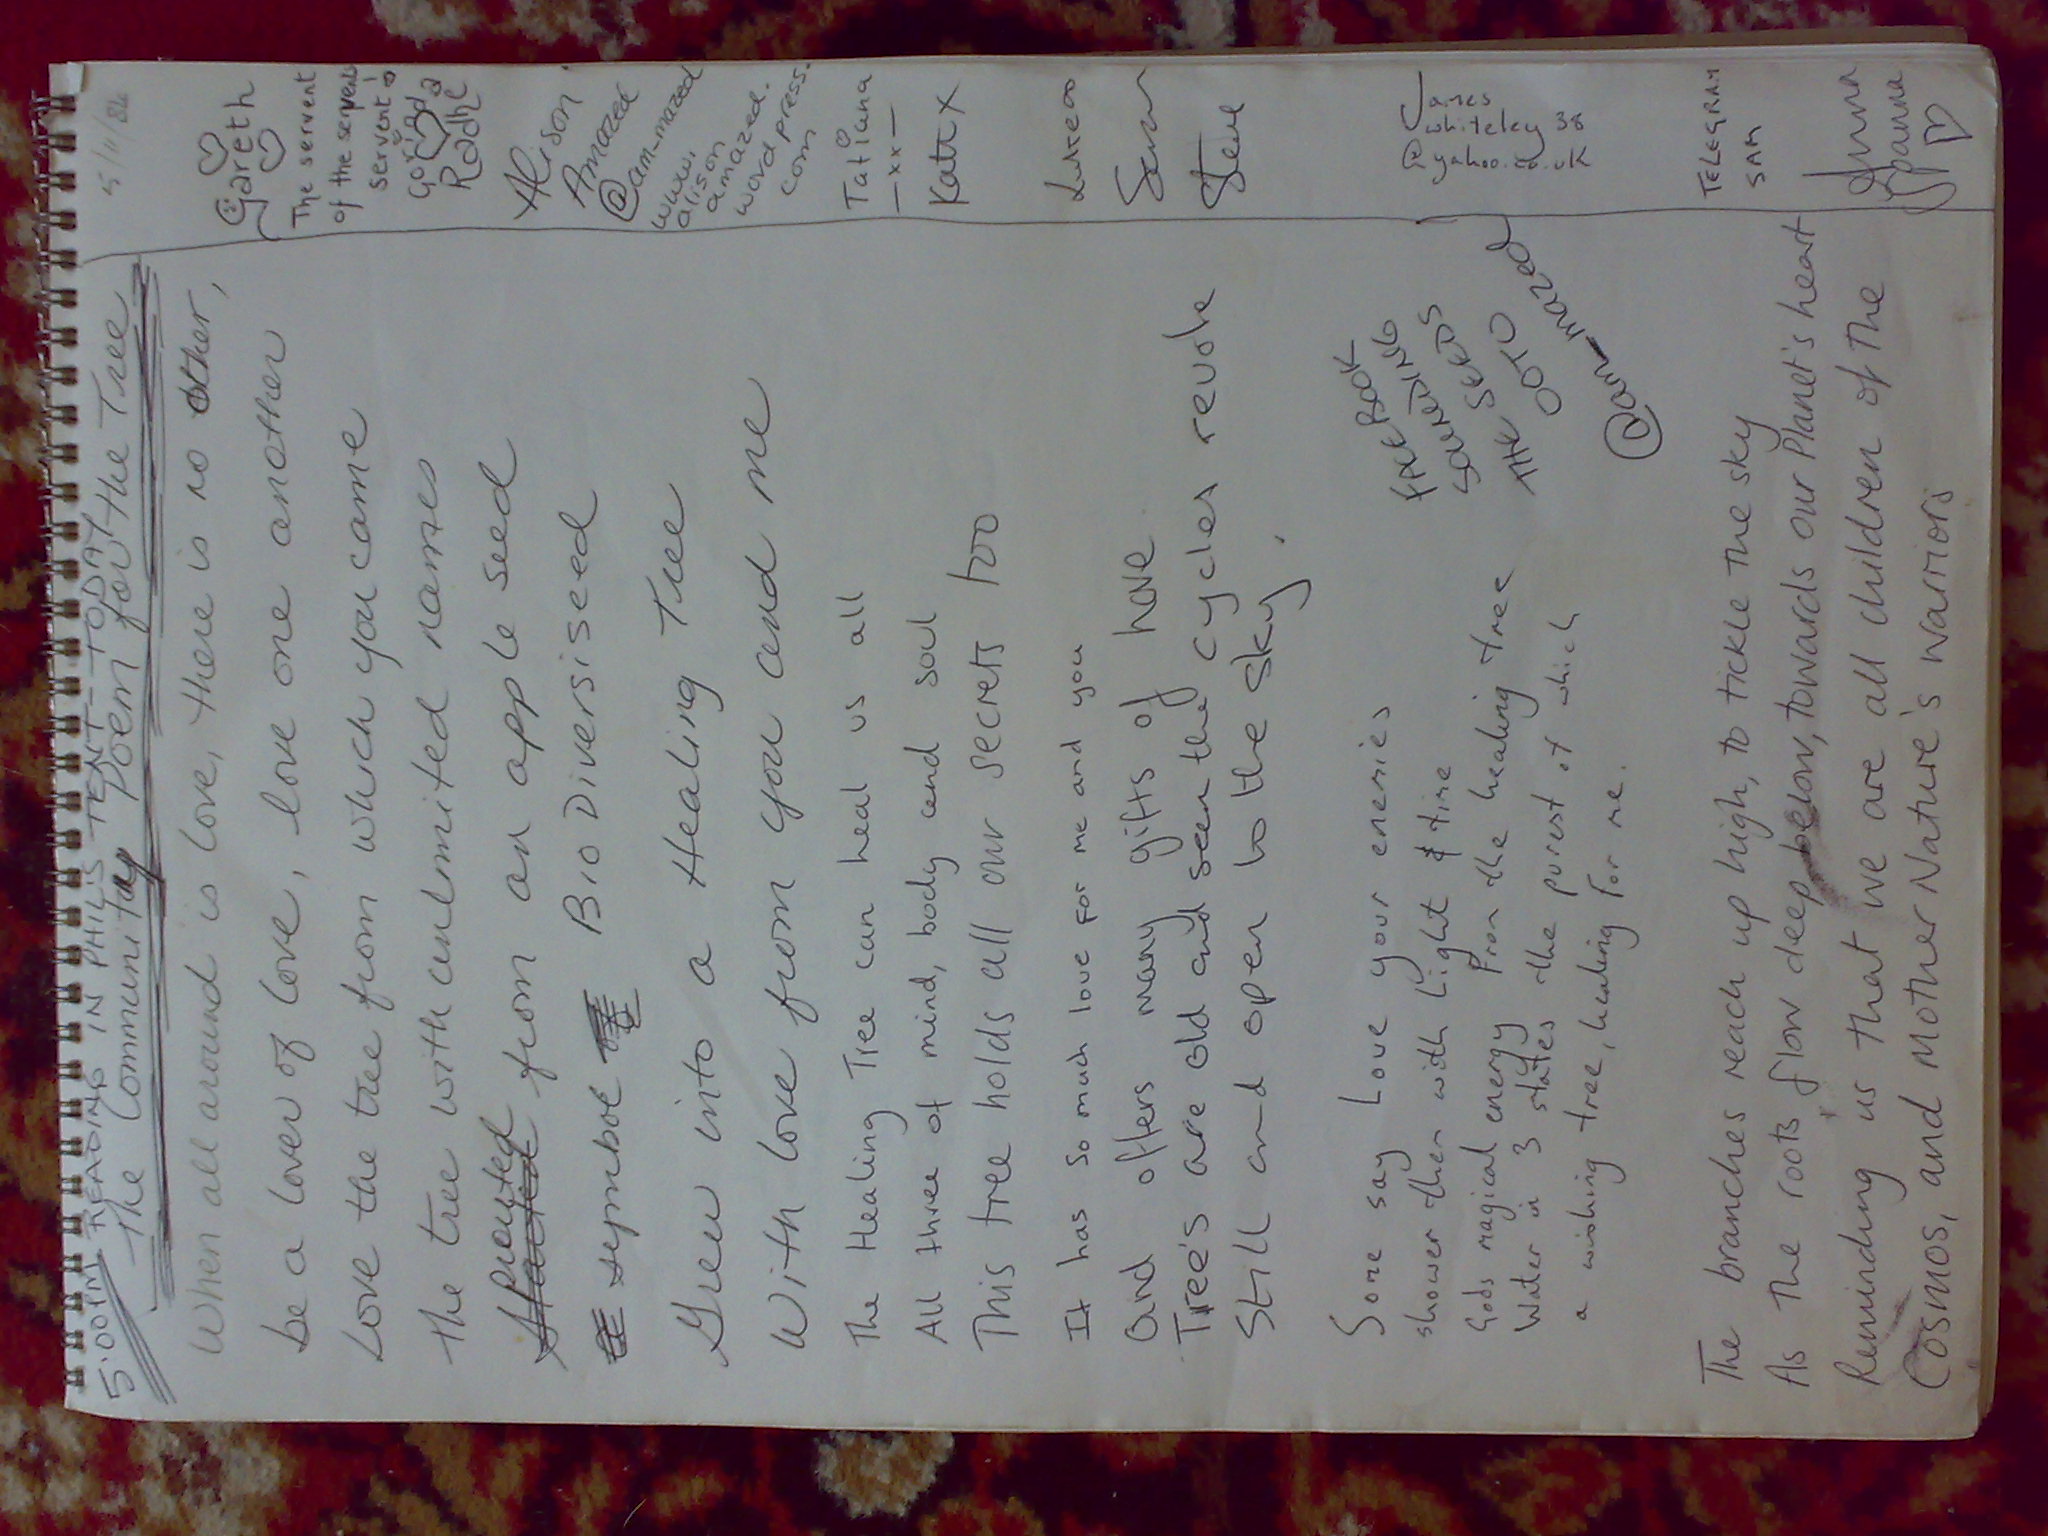 5:00PM READING IN PHIL'S TENT - TODAY
The Community Poem for the Tree
When all around is love, there is no other,
be a lover of love, love one another
Love the tree from which you came
the tree with unlimited names
sprouted
started from an apple seed
symbol Bio Diversiseed
Grew into a Healing Tree
With love from you and me
The Healing Tree can heal us all
All three of mind, body and soul
This tree holds all our secrets too
It has so much love for me and you
And offers many gifts of have
Tree's are old and seen the cycles revolve
Still and open to the sky.
Some say Love your enemies
shower them with Light & time
Gods magical energy from the healing tree
Water in 3 states the purest of which
a wishing tree, healing for me.
FACEBOOK
FREEING
SOURCES
SEEDS
THE
@am-mazed
The branches reach up high, to tickle the sky
As the roots flow deep below, towards our Planet's heart
Reminding us that we are all children of the
Cosmos, and Mother Nature's warriors
5/11/
Gareth
The servent
of the servents
servent
Govinda
Radhe
Alison
Amazed
@am-mazed
www.
alison
amazed.
wordpress.
com
Tatiana
-xx-
Kate x
Sam
Steve
James
whiteley 38
@yahoo.co.uk
TELEGRAM
SAM
Anna